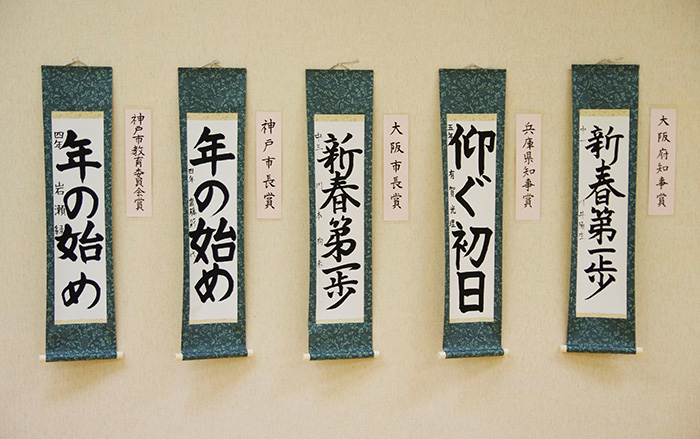 大阪府知事賞
新春第一歩
兵庫県知事賞
仰ぐ初日
五年 有賀
大阪市長賞
新春第一歩
中三
神戸市長賞
年の始め
四年
神戸市教育委員会賞
年の始め
四年 岩瀬